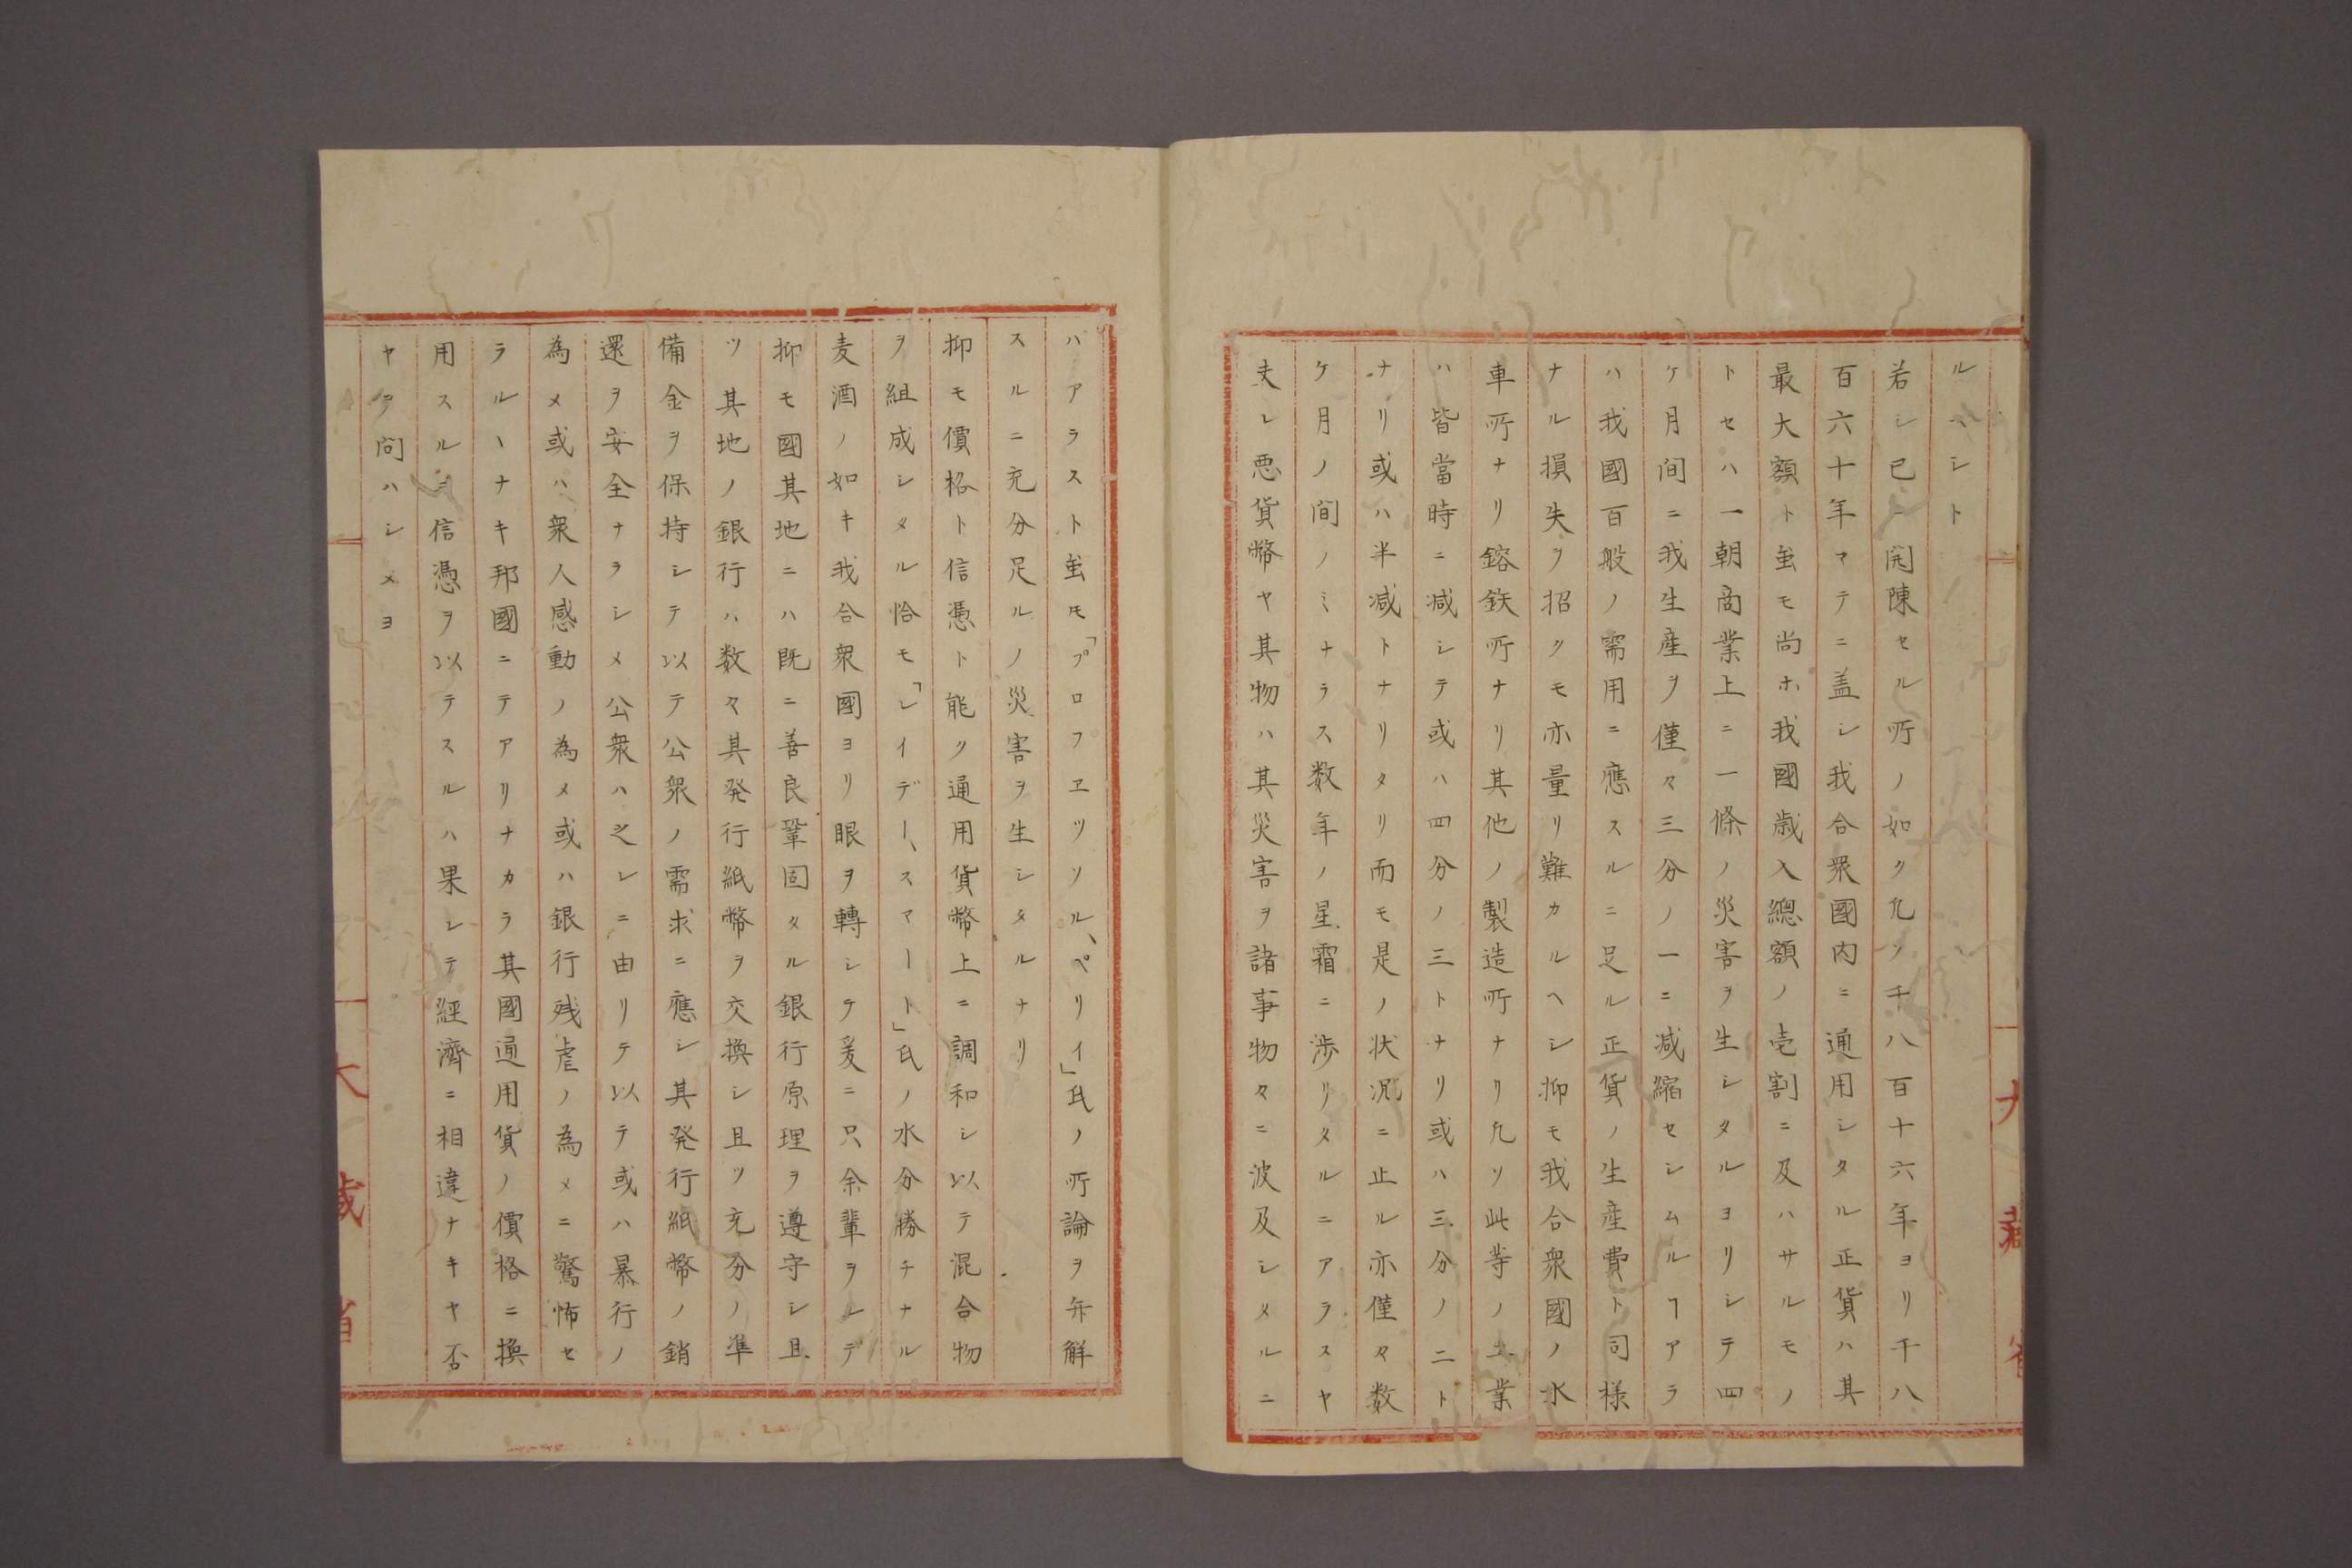 ルヘシト
若シ已ニ開陳セル所ノ如ク凢ソ千八百十六年ヨリ千八
百六十年マテニ盖シ我合衆國内ニ通用シタル正貨ハ其
最大額ト虽モ尚ホ我國歳入總額ノ壱割ニ及ハサルモノ
トセハ一朝商業上ニ一條ノ災害ヲ生シタルヨリシテ四
ケ月间ニ我生産ヲ僅々三分ノ一ニ减縮セシムルヿアラ
ハ我國百般ノ需用ニ應スルニ足ル正貨ノ生産費ト司様
ナル損失ヲ招クモ亦量リ難カルヘシ抑モ我合衆國ノ水
車所ナリ鎔鉄所ナリ其他ノ製造所ナリ凢ソ此等ノ工業
ハ皆當時ニ减シテ或ハ四分ノ三トナリ或ハ三分ノ二ト
ナリ或ハ半减トナリタリ而モ是ノ状况ニ止ル亦僅々数
ケ月ノ间ノミナラス数年ノ星霜ニ渉リタルニアラスヤ
夫レ悪貨幣ヤ其物ハ其災害ヲ諸事物々ニ波及シメルニ
ハアラスト虽モ「プロフヱツソル、ペリイ」氏ノ所論ヲ弁解
スルニ充分足ルノ災害ヲ生シタルナリ
抑モ價格ト信憑ト能ク通用貨幣上ニ調和シ以テ混合物
ヲ組成シメル恰モ「レイデー、スマート」氏ノ水分勝チナル
麦酒ノ如キ我合衆國ヨリ眼ヲ轉シテ爰ニ只余輩ヲシテ
抑モ國其地ニハ既ニ善良鞏固タル銀行原理ヲ遵守シ且
ツ其地ノ銀行ハ数々其発行紙幣ヲ交換シ且ツ充分ノ準
備金ヲ保持シテ以テ公衆ノ需求ニ應シ其発行紙幣ノ銷
還ヲ安全ナラシメ公衆ハ之レニ由リテ以テ或ハ暴行ノ
為メ或ハ衆人感動ノ為メ或ハ銀行残虐ノ為メニ驚怖セ
ラルヽナキ邦國ニテアリナカラ其國通用貨ノ價格ニ換
用スルニ信憑ヲ以テスルハ果シテ經濟ニ相違ナキヤ否
ヤヲ问ハシメヨ
大藏省